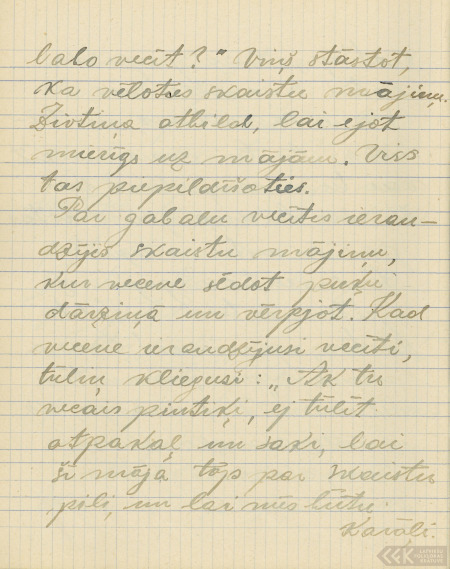 balo vecīt?" Viņš stāstot,
ka vēloties skaistu mājiņu.
Zivtiņa atbild, lai ejot
mierīgs uz mājām. Viss
tas piepildīšoties.
Par gabalu vecītis ieran-
dzījis skaistu mājiņu,
kur vecene sēdot puķu
dārziņā un vērpjot. Kad
vecene ieraudzījusi vecīti,
tūliņ kliegusi: „Ak tu
vecais pintiķi, ej tūlīt
atpakaļ un saki, lai
šī māja top par skaistu
pili, un lai mēs būtu
Karaļi.
LATVIEŠU
FOLKLORAS
KRĀTUVE